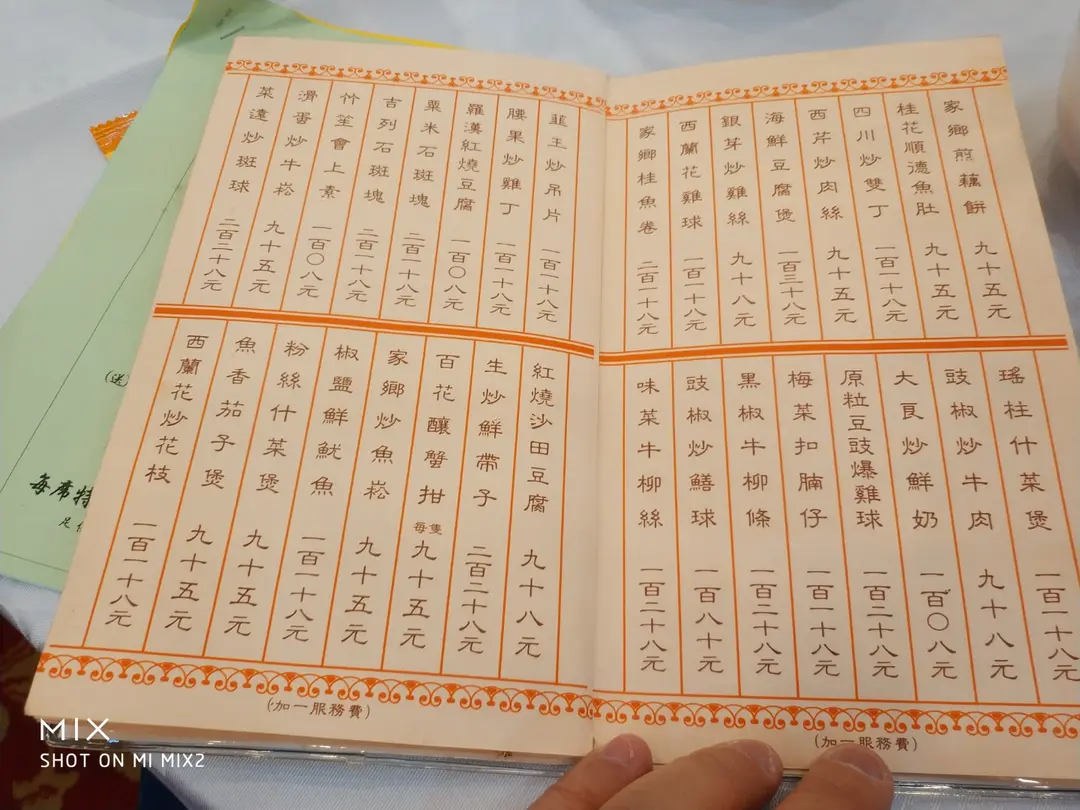 家鄉煎藕餅 九十五元
桂花順德魚肚 九十五元
四川炒雙丁 一百一十八元
西芹炒肉絲 九十五元
海鮮豆腐煲 一百三十八元
銀芽炒雞絲 九十八元
西蘭花雞球 一百一十八元
家鄉桂魚卷 二百一十八元
瑤柱什菜煲 一百一十八元
豉椒炒牛肉 九十八元
大良炒鮮奶 一百〇八元
原粒豆豉爆雞球 一百二十八元
梅菜扣腩仔 一百一十八元
黑椒牛柳條 一百二十八元
豉椒炒鱔球 一百八十元
味菜牛柳絲 一百二十八元
(加一服務費)
韮王炒吊片 一百一十八元
腰果炒雞丁 一百一十八元
羅漢紅燒豆腐 一百〇八元
粟米石斑塊 二百一十八元
吉列石斑塊 二百一十八元
竹笙會上素 一百〇八元
滑蛋炒牛崧 九十五元
菜遠炒斑球 二百二十八元
紅燒沙田豆腐 九十八元
生炒鮮帶子 二百二十八元
百花釀蟹拑 每隻九十五元
家鄉炒魚崧 九十五元
椒鹽鮮魷魚 一百一十八元
粉絲什菜煲 九十五元
魚香茄子煲 九十五元
西蘭花炒花枝 一百一十八元
(加一服務費)
(送
每席特
MIX
SHOT ON MI MIX2